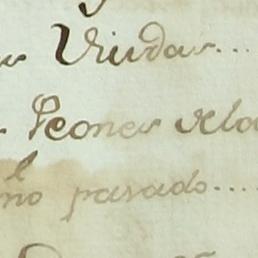 Viudas....
Peones dela
no pasado....